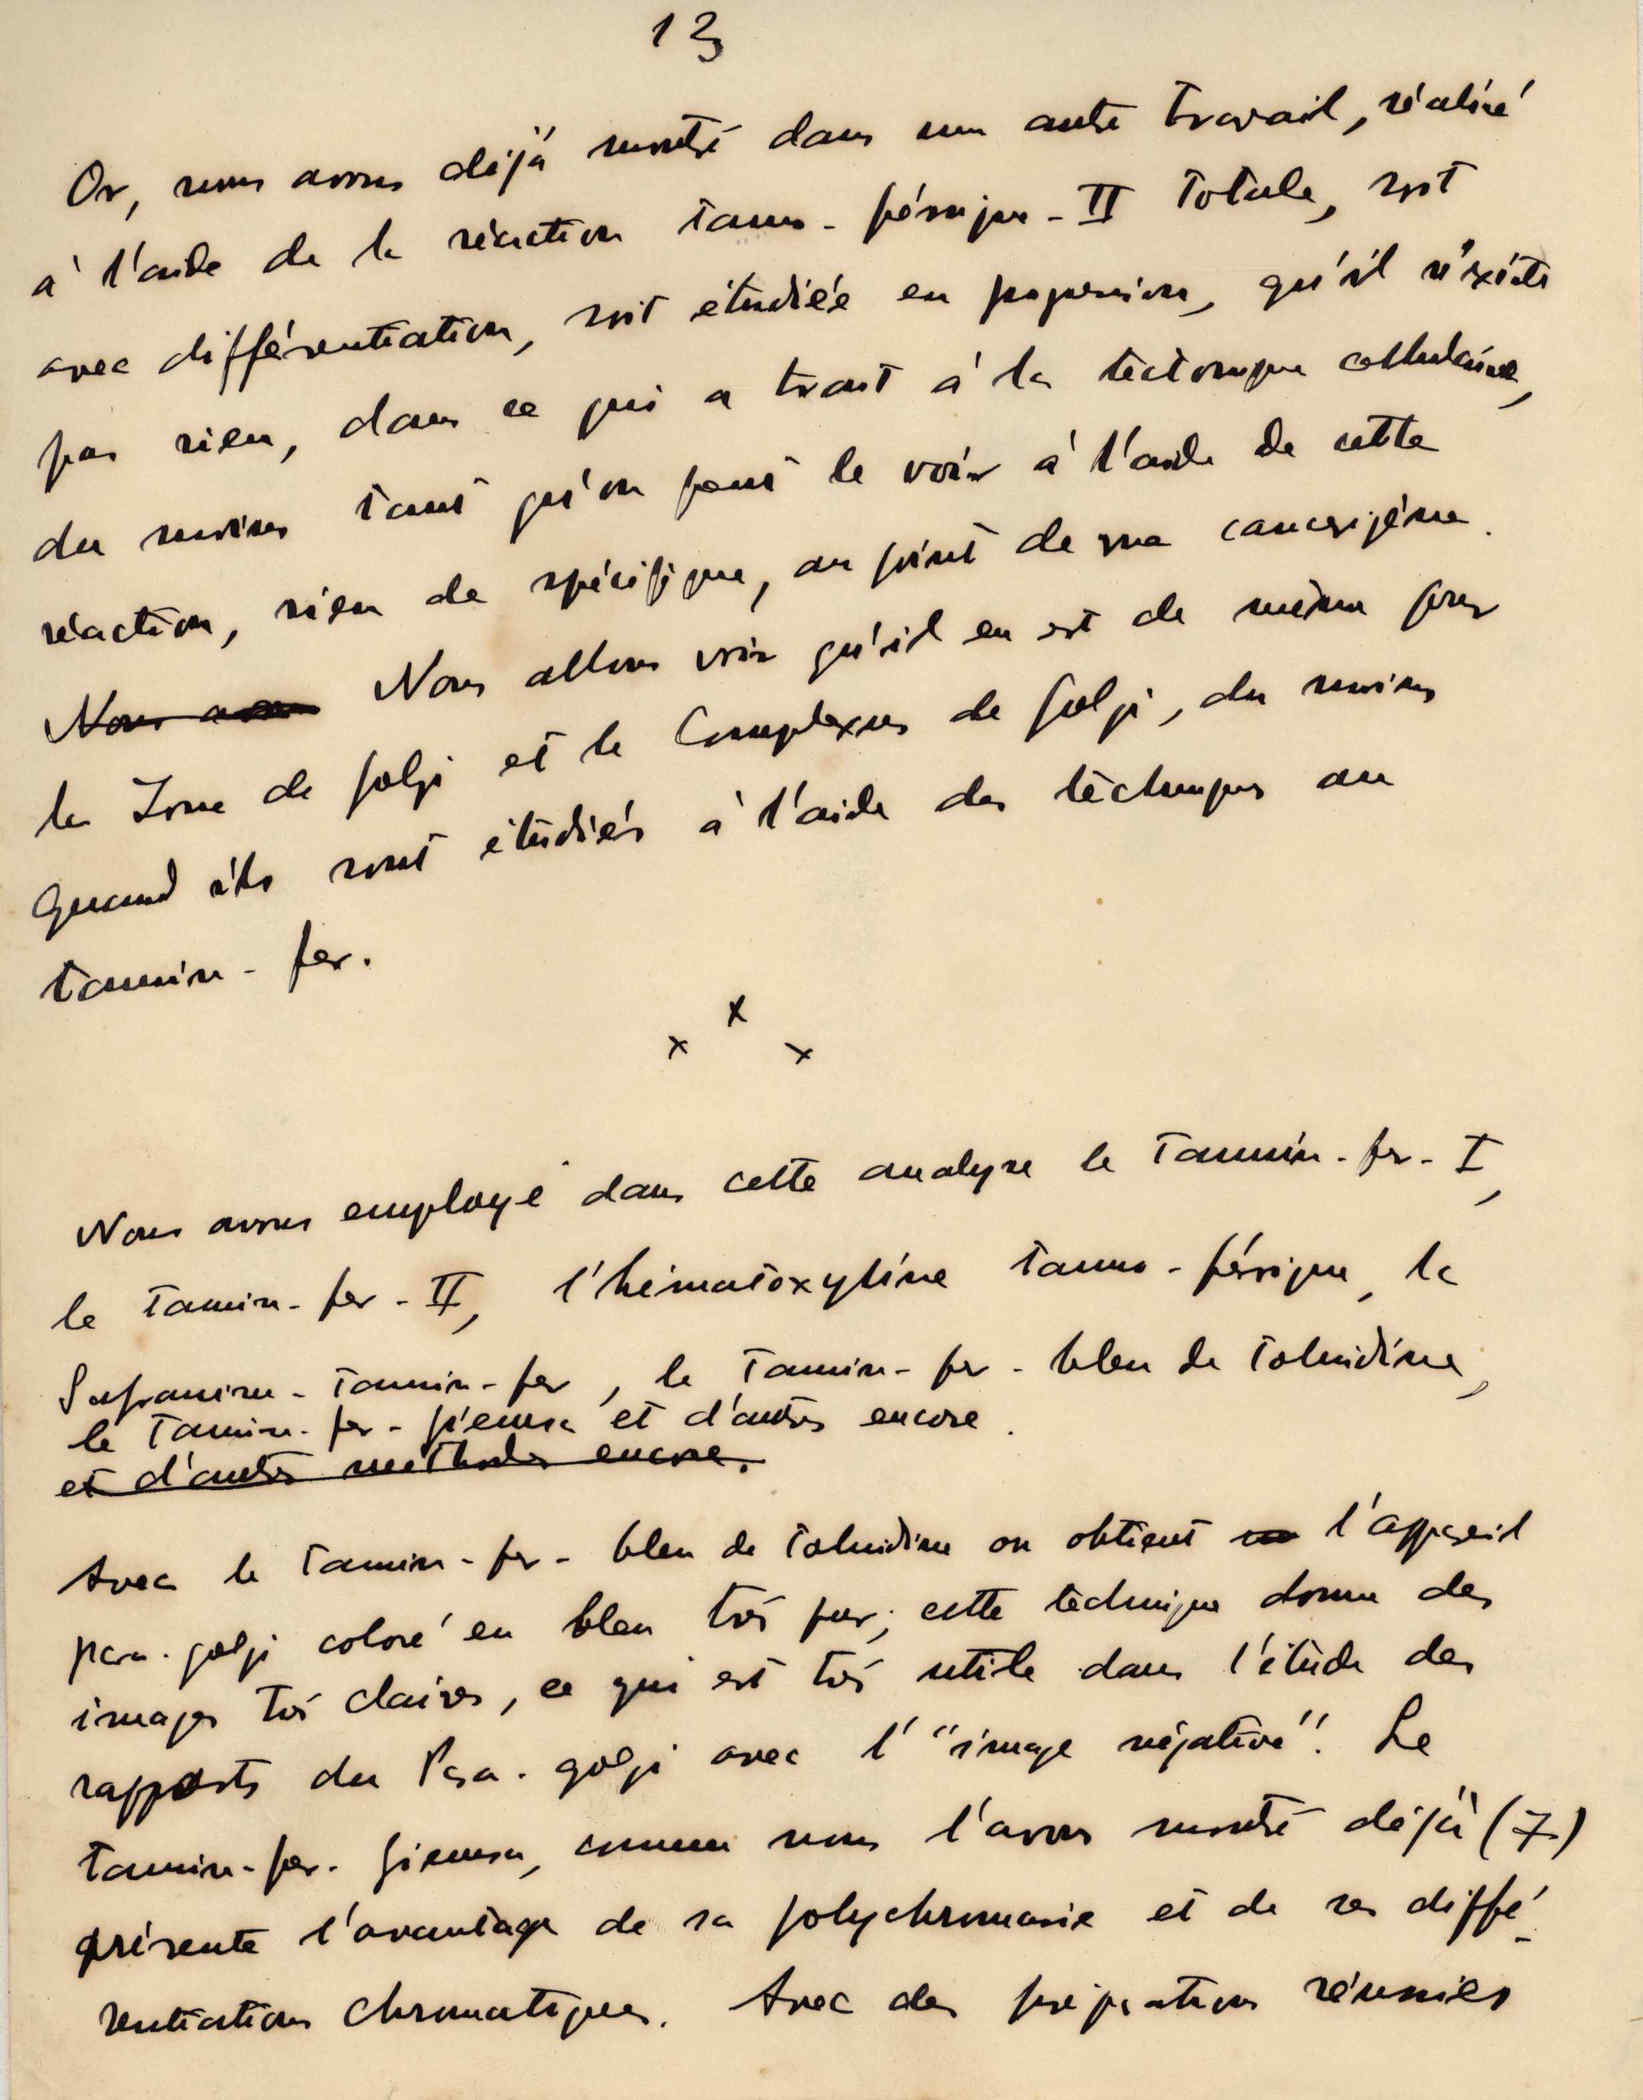 13
Or, nous avons déjà montré dans un autre travail, réalisé
à l'aide de la réaction tanno-férrique-II Totale, soit
avec différentiation, soit étudiée en progression, qu'il n'existe
pas rien, dans ce qui a trait à la tectonique cellulaire,
du moins tant qu'on peut le voir à l'aide de cette
réaction, rien de spécifique, au point de vue cancérigène.
Nous avons Nous allons voir qu'il en est de même pour
la Zone de Golgi et le Complexus de Golgi, du moins
quand ils sont étudiés à l'aide des téchniques au
tannin-fer.
x x x
Nous avons employé dans cette analyse le Tannin-fer-I,
le Tannin-fer-II, l'hématoxyline tanno-férrique, la
Safranine-Tannin-fer, le Tannin-fer-bleu de Toluidine,
le Tannin-fer-giemsa et d'autres encore.
et d'autres méthodes encore.
Avec le Tannin-fer-bleu de Toluidine on obtient l'appareil
para-golgi coloré en bleu très pur; cette téchnique donne des
images très claires, ce qui est très utile dans l'étude des
rapports du Para-golgi avec l'"image négative". Le
tannin-fer-Giemsa, comme nous l'avons montré déjà (7)
présente l'avantage de sa polychromasie et de ses diffé-
rentiations chromatiques. Avec des préparations réussies